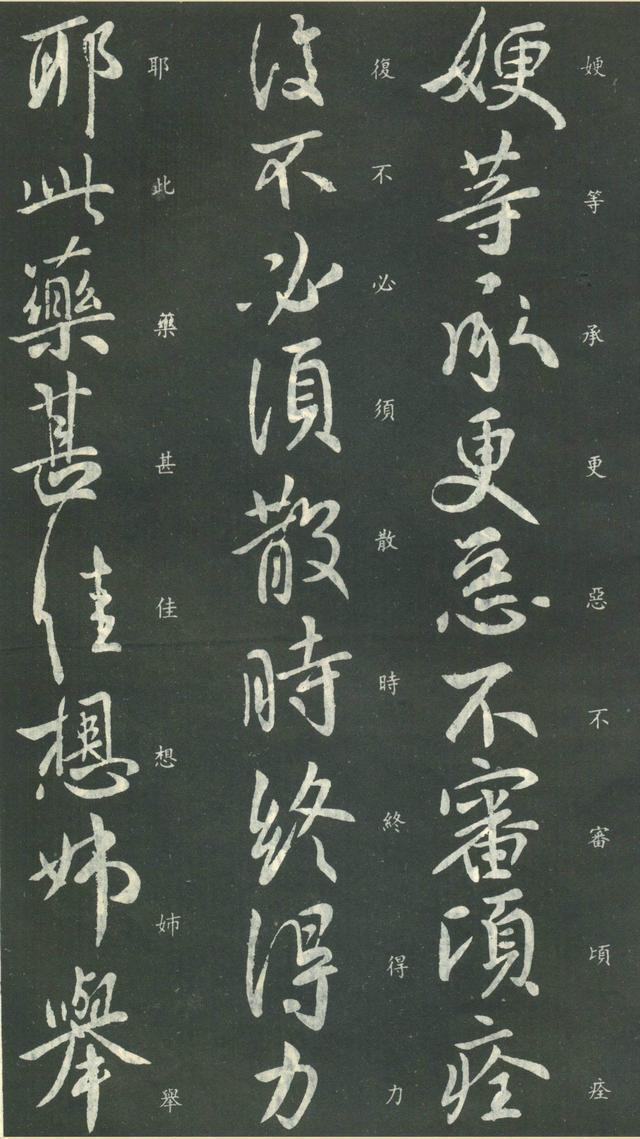 㛐等承更惡不審頃痊
㛐等承更惡不審頃痊
復不必須散時終得力
復不必須散時終得力
耶此藥甚佳想姉舉
耶此藥甚佳想姉舉